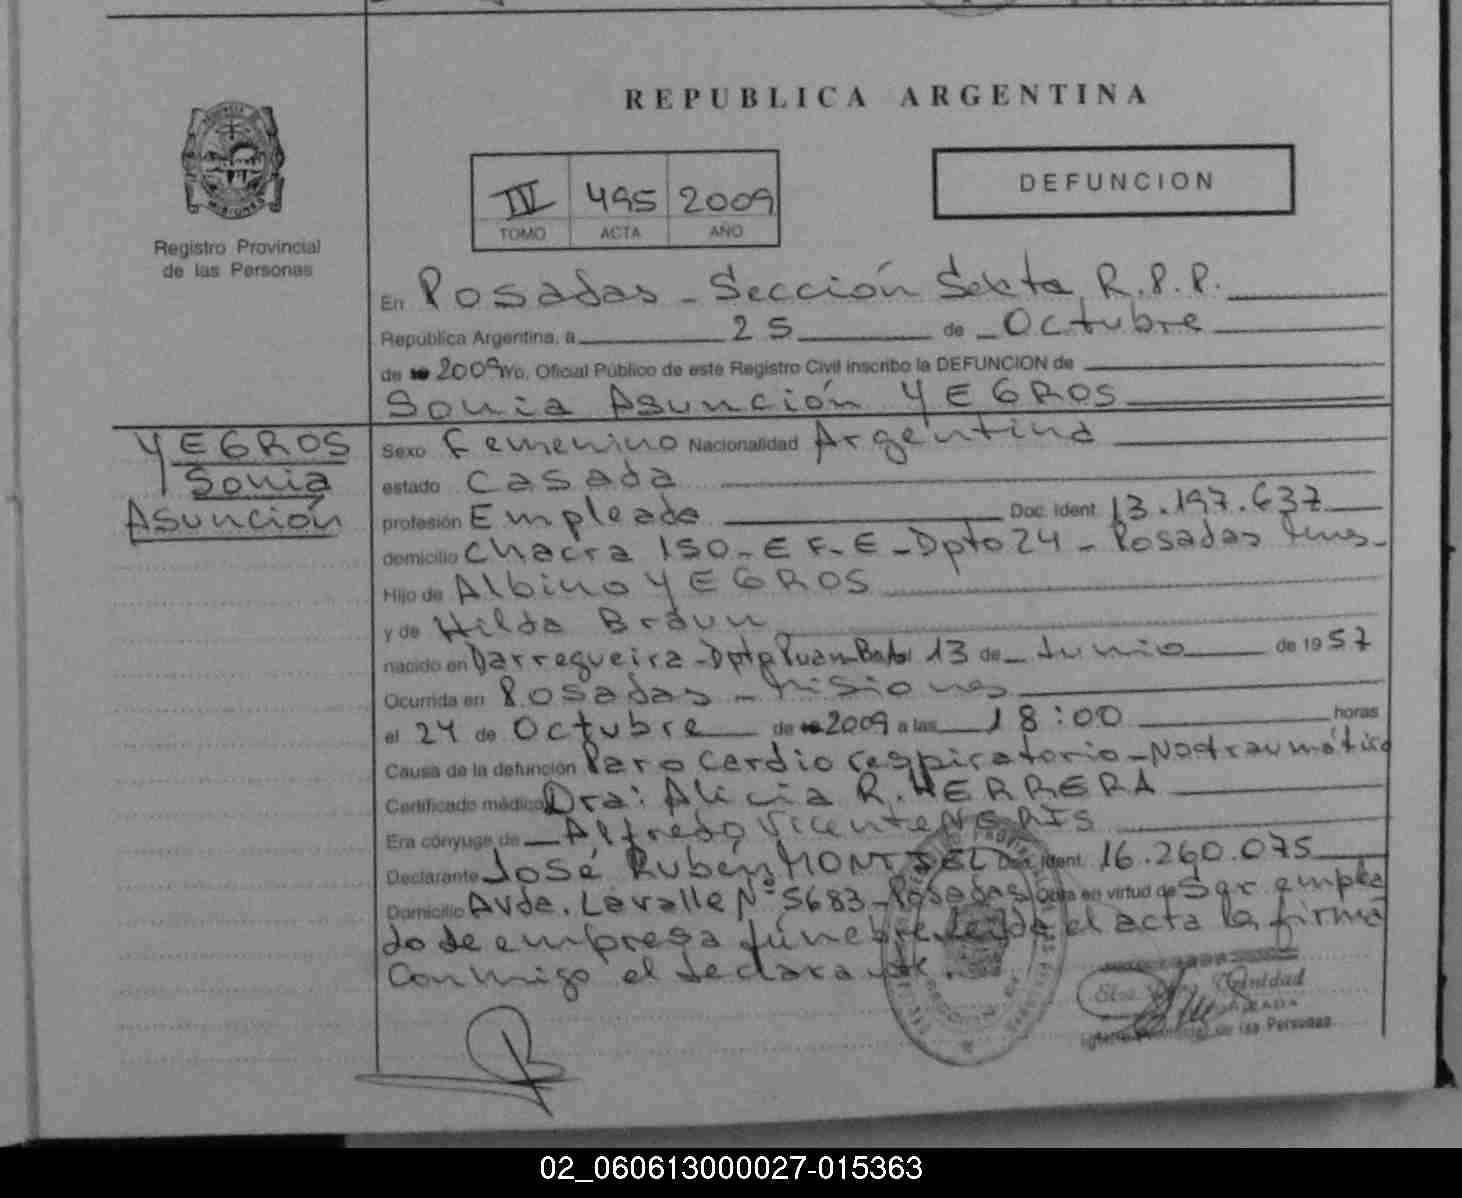 REPUBLICA ARGENTINA
DEFUNCION
IV 495 2009
TOMO ACTA AÑO
MISIONES
Registro Provincial
de las Personas
En Posadas - Sección Sexta, R.P.P.
República Argentina, a 25 de Octubre
de 2009 Yo, Oficial Público de este Registro Civil inscribo la DEFUNCION de
Sonia Asunción YEGROS
YEGROS
Sonia
Asunción
Sexo Femenino Nacionalidad Argentina
estado Casada
profesión Empleada Doc. Ident. 13.197.637
domicilio Chacra 150-E F-E-Dpto 24 - Posadas
Hijo de Albino YEGROS
y de Hilda Braun
nacido en Darregueira - Dpto Puan-BsAs 13 de Junio de 1957
Ocurrida en Posadas - Misiones
el 24 de Octubre de 2009 a las 18:00 horas
Causa de la defunción Paro Cardio respiratorio - No traumático
Certificado médico Dra: Alicia R. HERRERA
Era cónyuge de Alfredo Vicente NERIS
Declarante José Rubén MONTIEL Doc. Ident. 16.260.075
Domicilio Avda. Lavalle N° 5683-Posadas Obra en virtud de Ser emplea
do de empresa fúnebre. Leída el acta la firma
Conmigo el declarante.
Trinidad
de las Personas
02_060613000027-015363